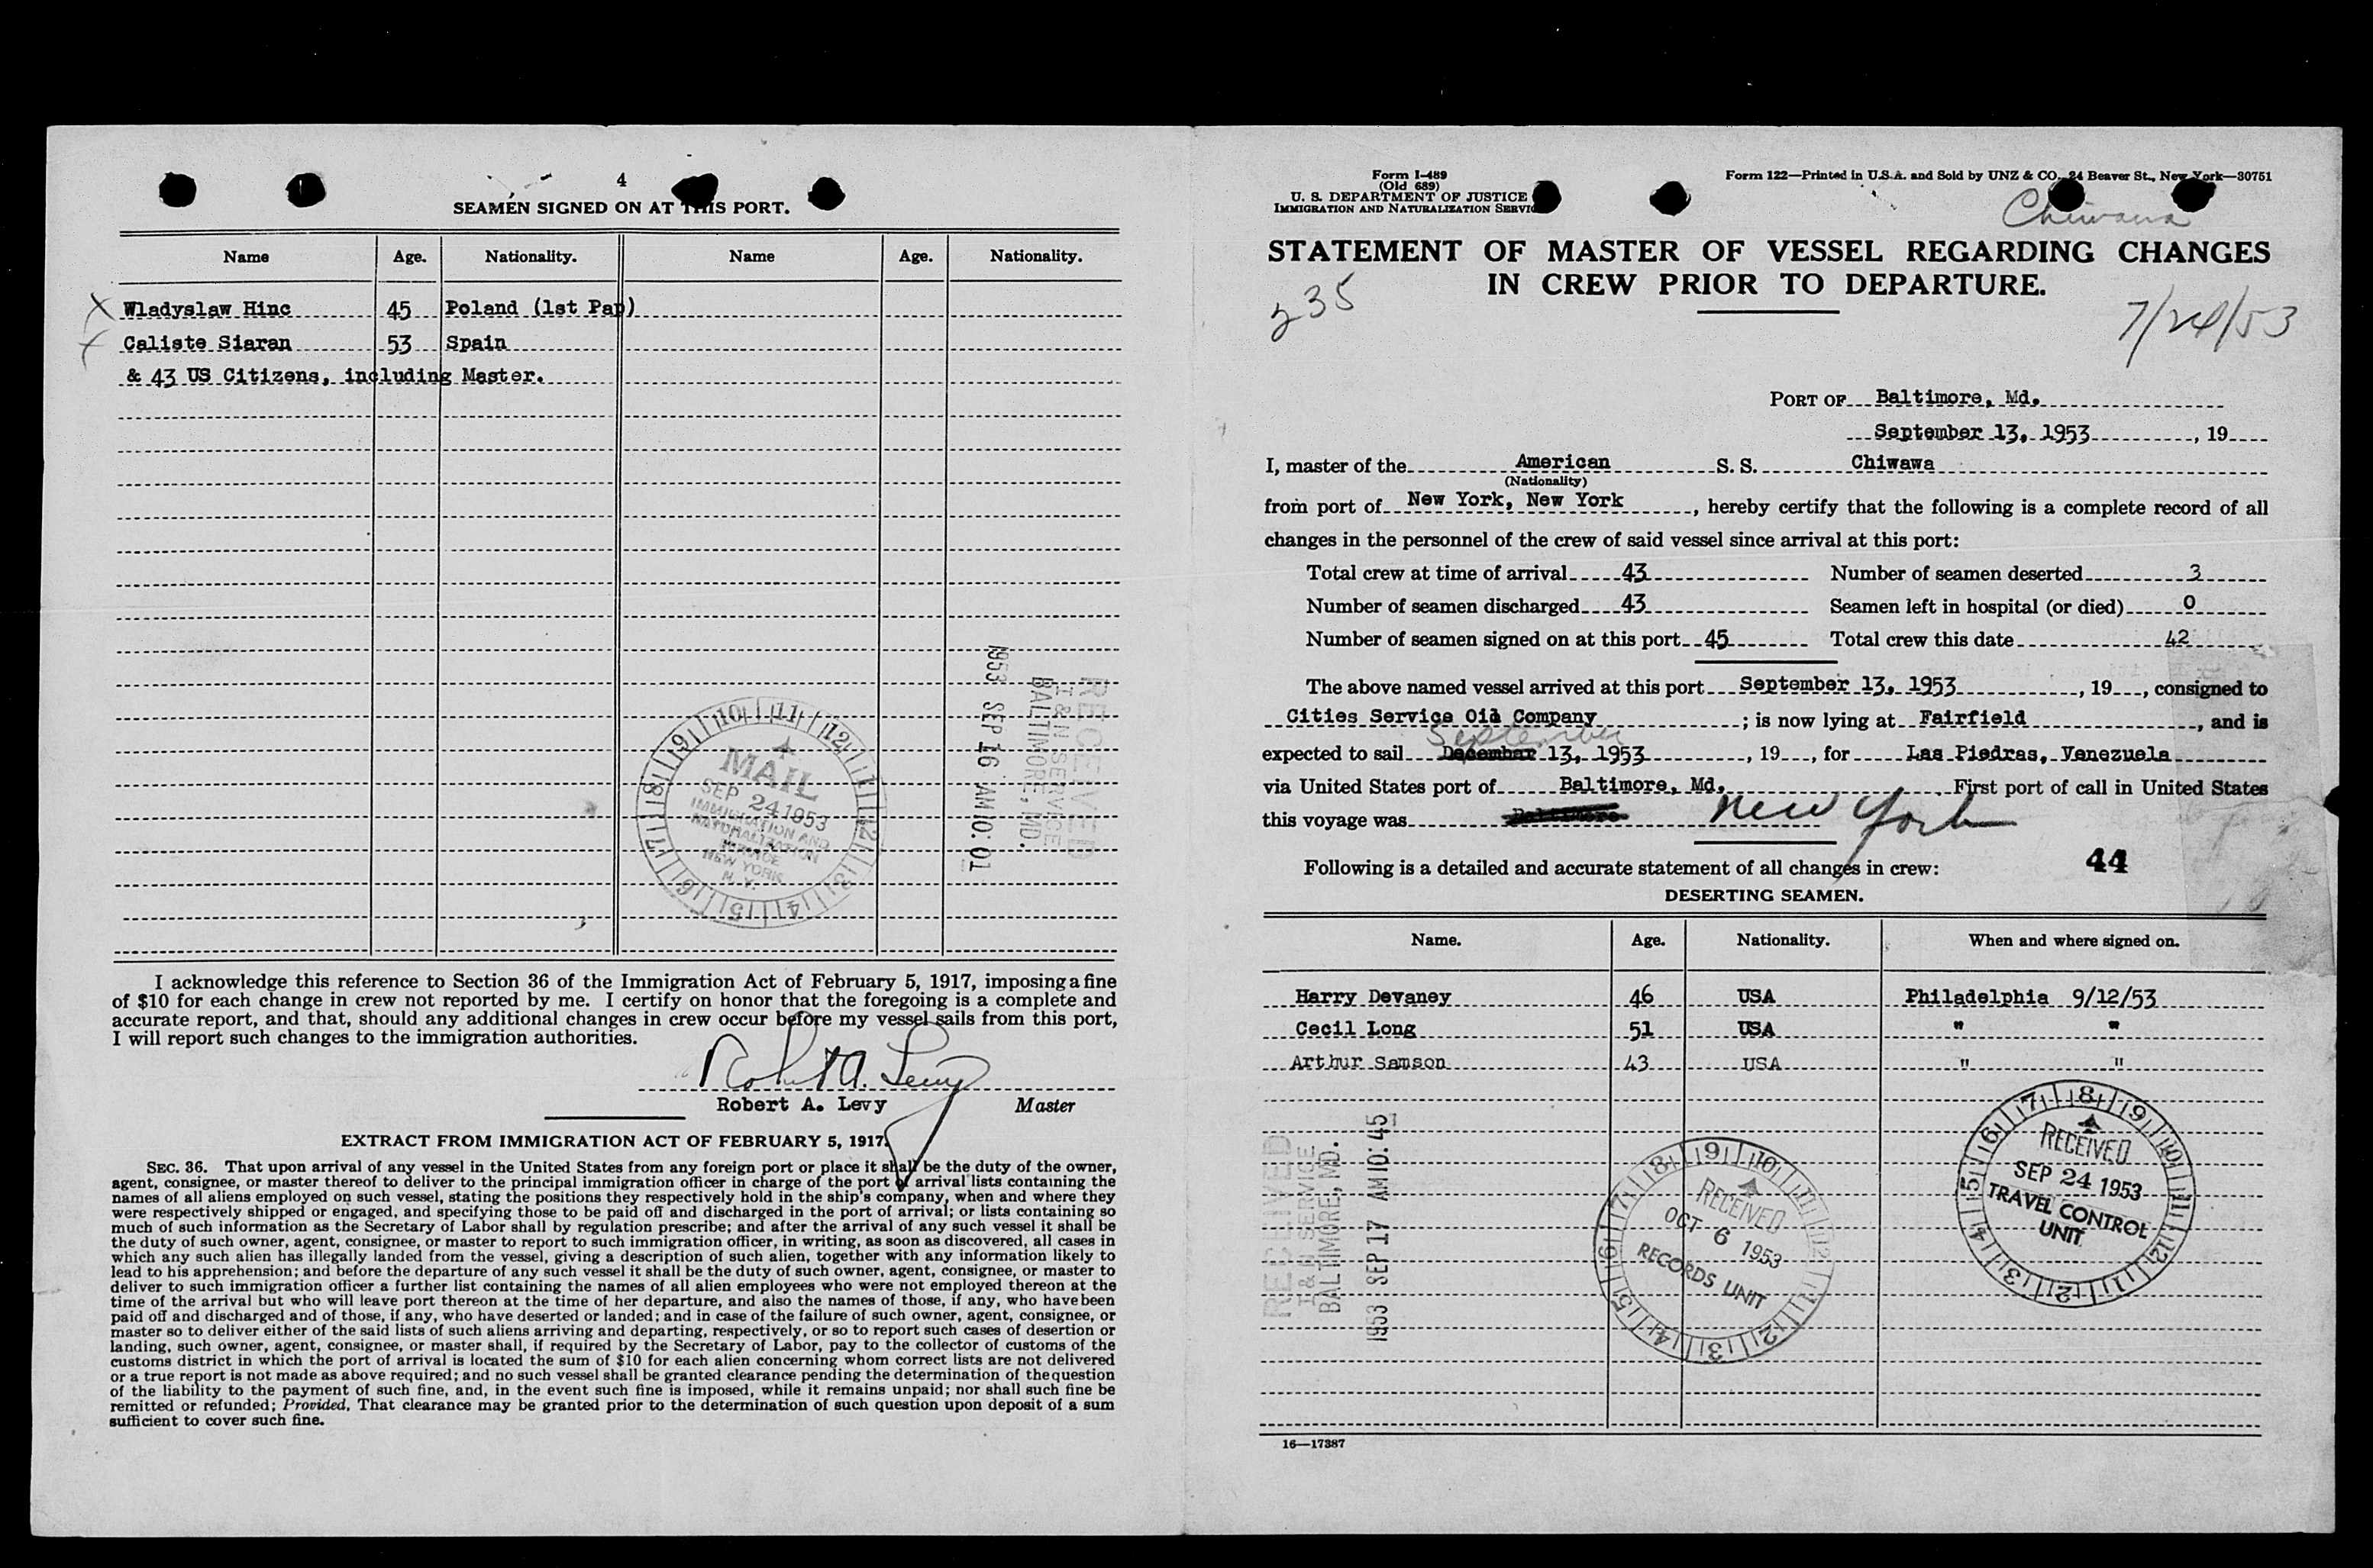 4
SEAMEN SIGNED ON AT THIS PORT.
Name Age. Nationality. Name Age. Nationality.
X Wladyslaw Hinc 45 Poland (1st Pap)
X Caliste Siaran 53 Spain
& 43 US Citizens, including Master.
MAIL
SEP 24 1953
IMMIGRATION AND
NATURALIZATION
SERVICE
NEW YORK
N. Y.
RECEIVED
I & N SERVICE
BALTIMORE, MD.
1953 SEP 16 AM 10:01
I acknowledge this reference to Section 36 of the Immigration Act of February 5, 1917, imposing a fine
of $10 for each change in crew not reported by me. I certify on honor that the foregoing is a complete and
accurate report, and that, should any additional changes in crew occur before my vessel sails from this port,
I will report such changes to the immigration authorities.
Robert A. Levy
Robert A. Levy Master
EXTRACT FROM IMMIGRATION ACT OF FEBRUARY 5, 1917.
SEC. 36. That upon arrival of any vessel in the United States from any foreign port or place it shall be the duty of the owner,
agent, consignee, or master thereof to deliver to the principal immigration officer in charge of the port of arrival lists containing the
names of all aliens employed on such vessel, stating the positions they respectively hold in the ship's company, when and where they
were respectively shipped or engaged, and specifying those to be paid off and discharged in the port of arrival; or lists containing so
much of such information as the Secretary of Labor shall by regulation prescribe; and after the arrival of any such vessel it shall be
the duty of such owner, agent, consignee, or master to report to such immigration officer, in writing, as soon as discovered, all cases in
which any such alien has illegally landed from the vessel, giving a description of such alien, together with any information likely to
lead to his apprehension; and before the departure of any such vessel it shall be the duty of such owner, agent, consignee, or master to
deliver to such immigration officer a further list containing the names of all alien employees who were not employed thereon at the
time of the arrival but who will leave port thereon at the time of her departure, and also the names of those, if any, who have been
paid off and discharged and of those, if any, who have deserted or landed; and in case of the failure of such owner, agent, consignee, or
master so to deliver either of the said lists of such aliens arriving and departing, respectively, or so to report such cases of desertion or
landing, such owner, agent, consignee, or master shall, if required by the Secretary of Labor, pay to the collector of customs of the
customs district in which the port of arrival is located the sum of $10 for each alien concerning whom correct lists are not delivered
or a true report is not made as above required; and no such vessel shall be granted clearance pending the determination of the question
of the liability to the payment of such fine, and, in the event such fine is imposed, while it remains unpaid; nor shall such fine be
remitted or refunded; Provided, That clearance may be granted prior to the determination of such question upon deposit of a sum
sufficient to cover such fine.
Form I-489
(Old 689)
U. S. DEPARTMENT OF JUSTICE
IMMIGRATION AND NATURALIZATION SERVICE
Form 122—Printed in U.S.A. and Sold by UNZ & CO., 24 Beaver St., New York—30751
Chiwawa
STATEMENT OF MASTER OF VESSEL REGARDING CHANGES
IN CREW PRIOR TO DEPARTURE.
235
7/24/53
PORT OF Baltimore, Md.
September 13, 1953, 19
I, master of the American S. S. Chiwawa
(Nationality)
from port of New York, New York, hereby certify that the following is a complete record of all
changes in the personnel of the crew of said vessel since arrival at this port:
Total crew at time of arrival 43 Number of seamen deserted 3
Number of seamen discharged 43 Seamen left in hospital (or died) 0
Number of seamen signed on at this port 45 Total crew this date 42
The above named vessel arrived at this port September 13, 1953, 19, consigned to
Cities Service Oil Company; is now lying at Fairfield, and is
September
expected to sail December 13, 1953, 19, for Las Piedras, Venezuela
via United States port of Baltimore, Md. First port of call in United States
this voyage was Baltimore New York
Following is a detailed and accurate statement of all changes in crew: 44
DESERTING SEAMEN.
Name. Age. Nationality. When and where signed on.
Harry Devaney 46 USA Philadelphia 9/12/53
Cecil Long 51 USA " "
Arthur Samson 43 USA " "
RECEIVED
I & N SERVICE
BALTIMORE, MD.
1953 SEP 17 AM 10:45
RECEIVED
OCT 6 1953
RECORDS UNIT
RECEIVED
SEP 24 1953
TRAVEL CONTROL
UNIT
16—17387